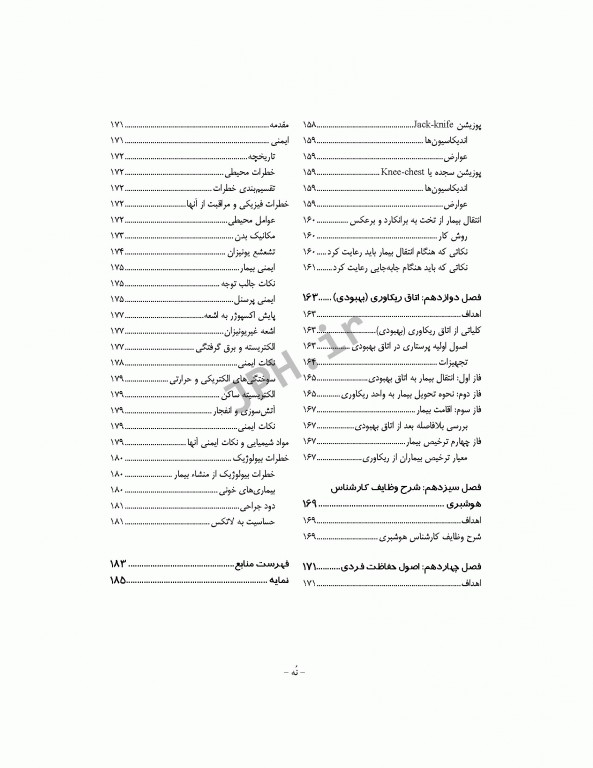 پوزیشن Jack-knife ........ ۱۵۸
اندیکاسیون‌ها ........ ۱۵۹
عوارض ........ ۱۵۹
پوزیشن سجده یا Knee-chest ........ ۱۵۹
اندیکاسیون‌ها ........ ۱۵۹
عوارض ........ ۱۵۹
انتقال بیمار از تخت به برانکارد و برعکس ........ ۱۶۰
روش کار ........ ۱۶۰
نکاتی که هنگام انتقال بیمار باید رعایت کرد ..... ۱۶۰
نکاتی که باید هنگام جابه‌جایی رعایت کرد ........ ۱۶۱
فصل دوازدهم: اتاق ریکاوری (بهبودی) ...... ۱۶۳
اهداف ........ ۱۶۳
کلیاتی از اتاق ریکاوری (بهبودی) ........ ۱۶۳
اصول اولیه پرستاری در اتاق بهبودی ........ ۱۶۳
تجهیزات ........ ۱۶۴
فاز اول: انتقال بیمار به اتاق بهبودی ........ ۱۶۵
فاز دوم: نحوه تحویل بیمار به واحد ریکاوری ........ ۱۶۵
فاز سوم: اقامت بیمار ........ ۱۶۷
بررسی بلافاصله بعد از اتاق بهبودی ........ ۱۶۷
فاز چهارم ترخیص بیمار ........ ۱۶۷
معیار ترخیص بیماران از ریکاوری ........ ۱۶۷
فصل سیزدهم: شرح وظایف کارشناس
هوشبری ........ ۱۶۹
اهداف ........ ۱۶۹
شرح وظایف کارشناس هوشبری ........ ۱۶۹
فصل چهاردهم: اصول حفاظت فردی ........ ۱۷۱
اهداف ........ ۱۷۱
مقدمه ........ ۱۷۱
ایمنی ........ ۱۷۱
تاریخچه ........ ۱۷۲
خطرات محیطی ........ ۱۷۲
تقسیم‌بندی خطرات ........ ۱۷۲
خطرات فیزیکی و مراقبت از آنها ........ ۱۷۲
عوامل محیطی ........ ۱۷۲
مکانیک بدن ........ ۱۷۳
تشعشع یونیزان ........ ۱۷۴
ایمنی بیمار ........ ۱۷۵
نکات جالب توجه ........ ۱۷۵
ایمنی پرسنل ........ ۱۷۵
پایش اکسپوژر به اشعه ........ ۱۷۷
اشعه غیریونیزان ........ ۱۷۷
الکتریسته و برق گرفتگی ........ ۱۷۷
نکات ایمنی ........ ۱۷۸
سوختگی‌های الکتریکی و حرارتی ........ ۱۷۹
الکتریسیته ساکن ........ ۱۷۹
آتش‌سوزی و انفجار ........ ۱۷۹
نکات ایمنی ........ ۱۷۹
مواد شیمیایی و نکات ایمنی آنها ........ ۱۷۹
خطرات بیولوژیک ........ ۱۸۰
خطرات بیولوژیک از منشاء بیمار ........ ۱۸۰
بیماری‌های خونی ........ ۱۸۰
دود جراحی ........ ۱۸۱
حساسیت به لاتکس ........ ۱۸۱
فهرست منابع ........ ۱۸۳
نمایه ........ ۱۸۵
– نُه –
JPH.ir